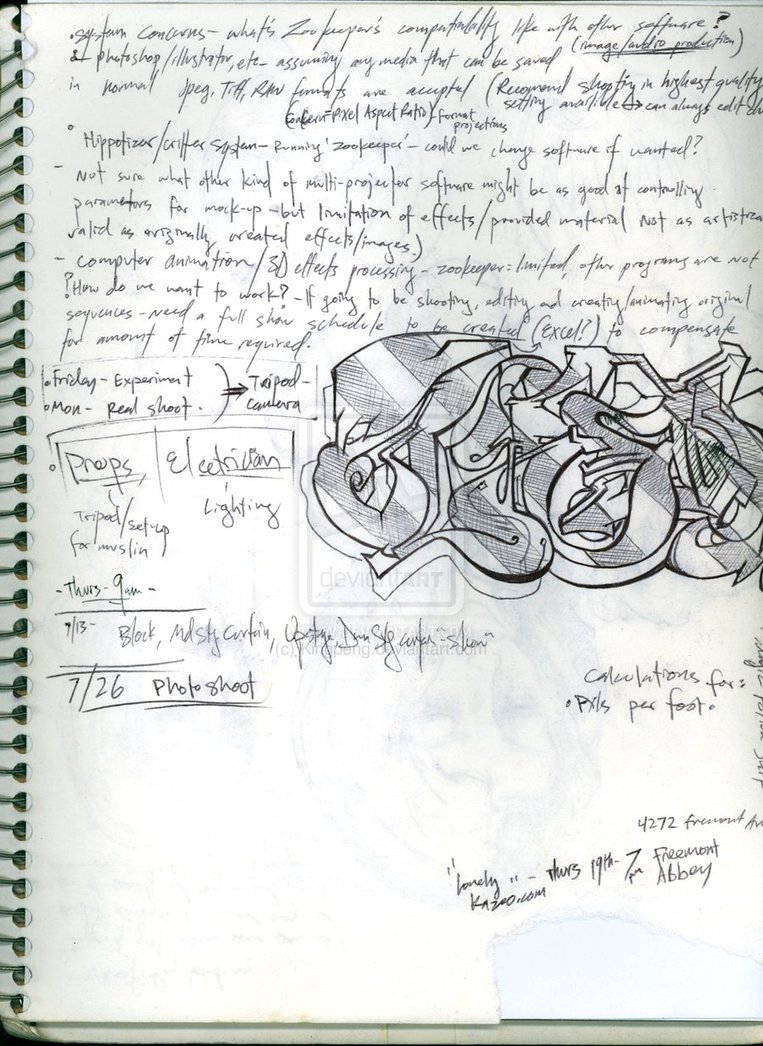 • System Concerns - what's Zookeeper's compatibility like with other software?
(image/audio production)
& photoshop/illustrator, etc - assuming any media that can be saved
in normal Jpeg, Tiff, RAW formats are accepted (Recomend shooting in highest quality
setting availible → can always edit
(Concern: Pixel Aspect Ratio) Format
projections
• Hippotizer/critter system - Running 'Zookeeper' - could we change software if wanted?
- Not sure what other kind of multi-projector software might be as good at controlling
parameters for mock-up - but limitation of effects/provided material not as
valid as originally created effects/images.)
- computer animation / 3D effects processing - zookeeper = limited, other programs are not
? How do we want to work? - If going to be shooting, editing and creating/animating original
sequences - need a full show schedule to be created (Excel?) to compensate
for amount of time required.
• Friday - Experiment
• Mon - Real shoot.
→ Tripod -
camera
• props
Electrician
Tripod/set-up
for muslin
Lighting
- Thurs - 9am -
7/13 - Block, Mdstg Curtain,
7/26 photoshoot
deviantART
(c) Kingpeng.deviantart.com
Calculations for:
• Pxls per foot.
4272 Fremont
"Lonely" - Thurs 19th - 7pm Freemont
Abbey